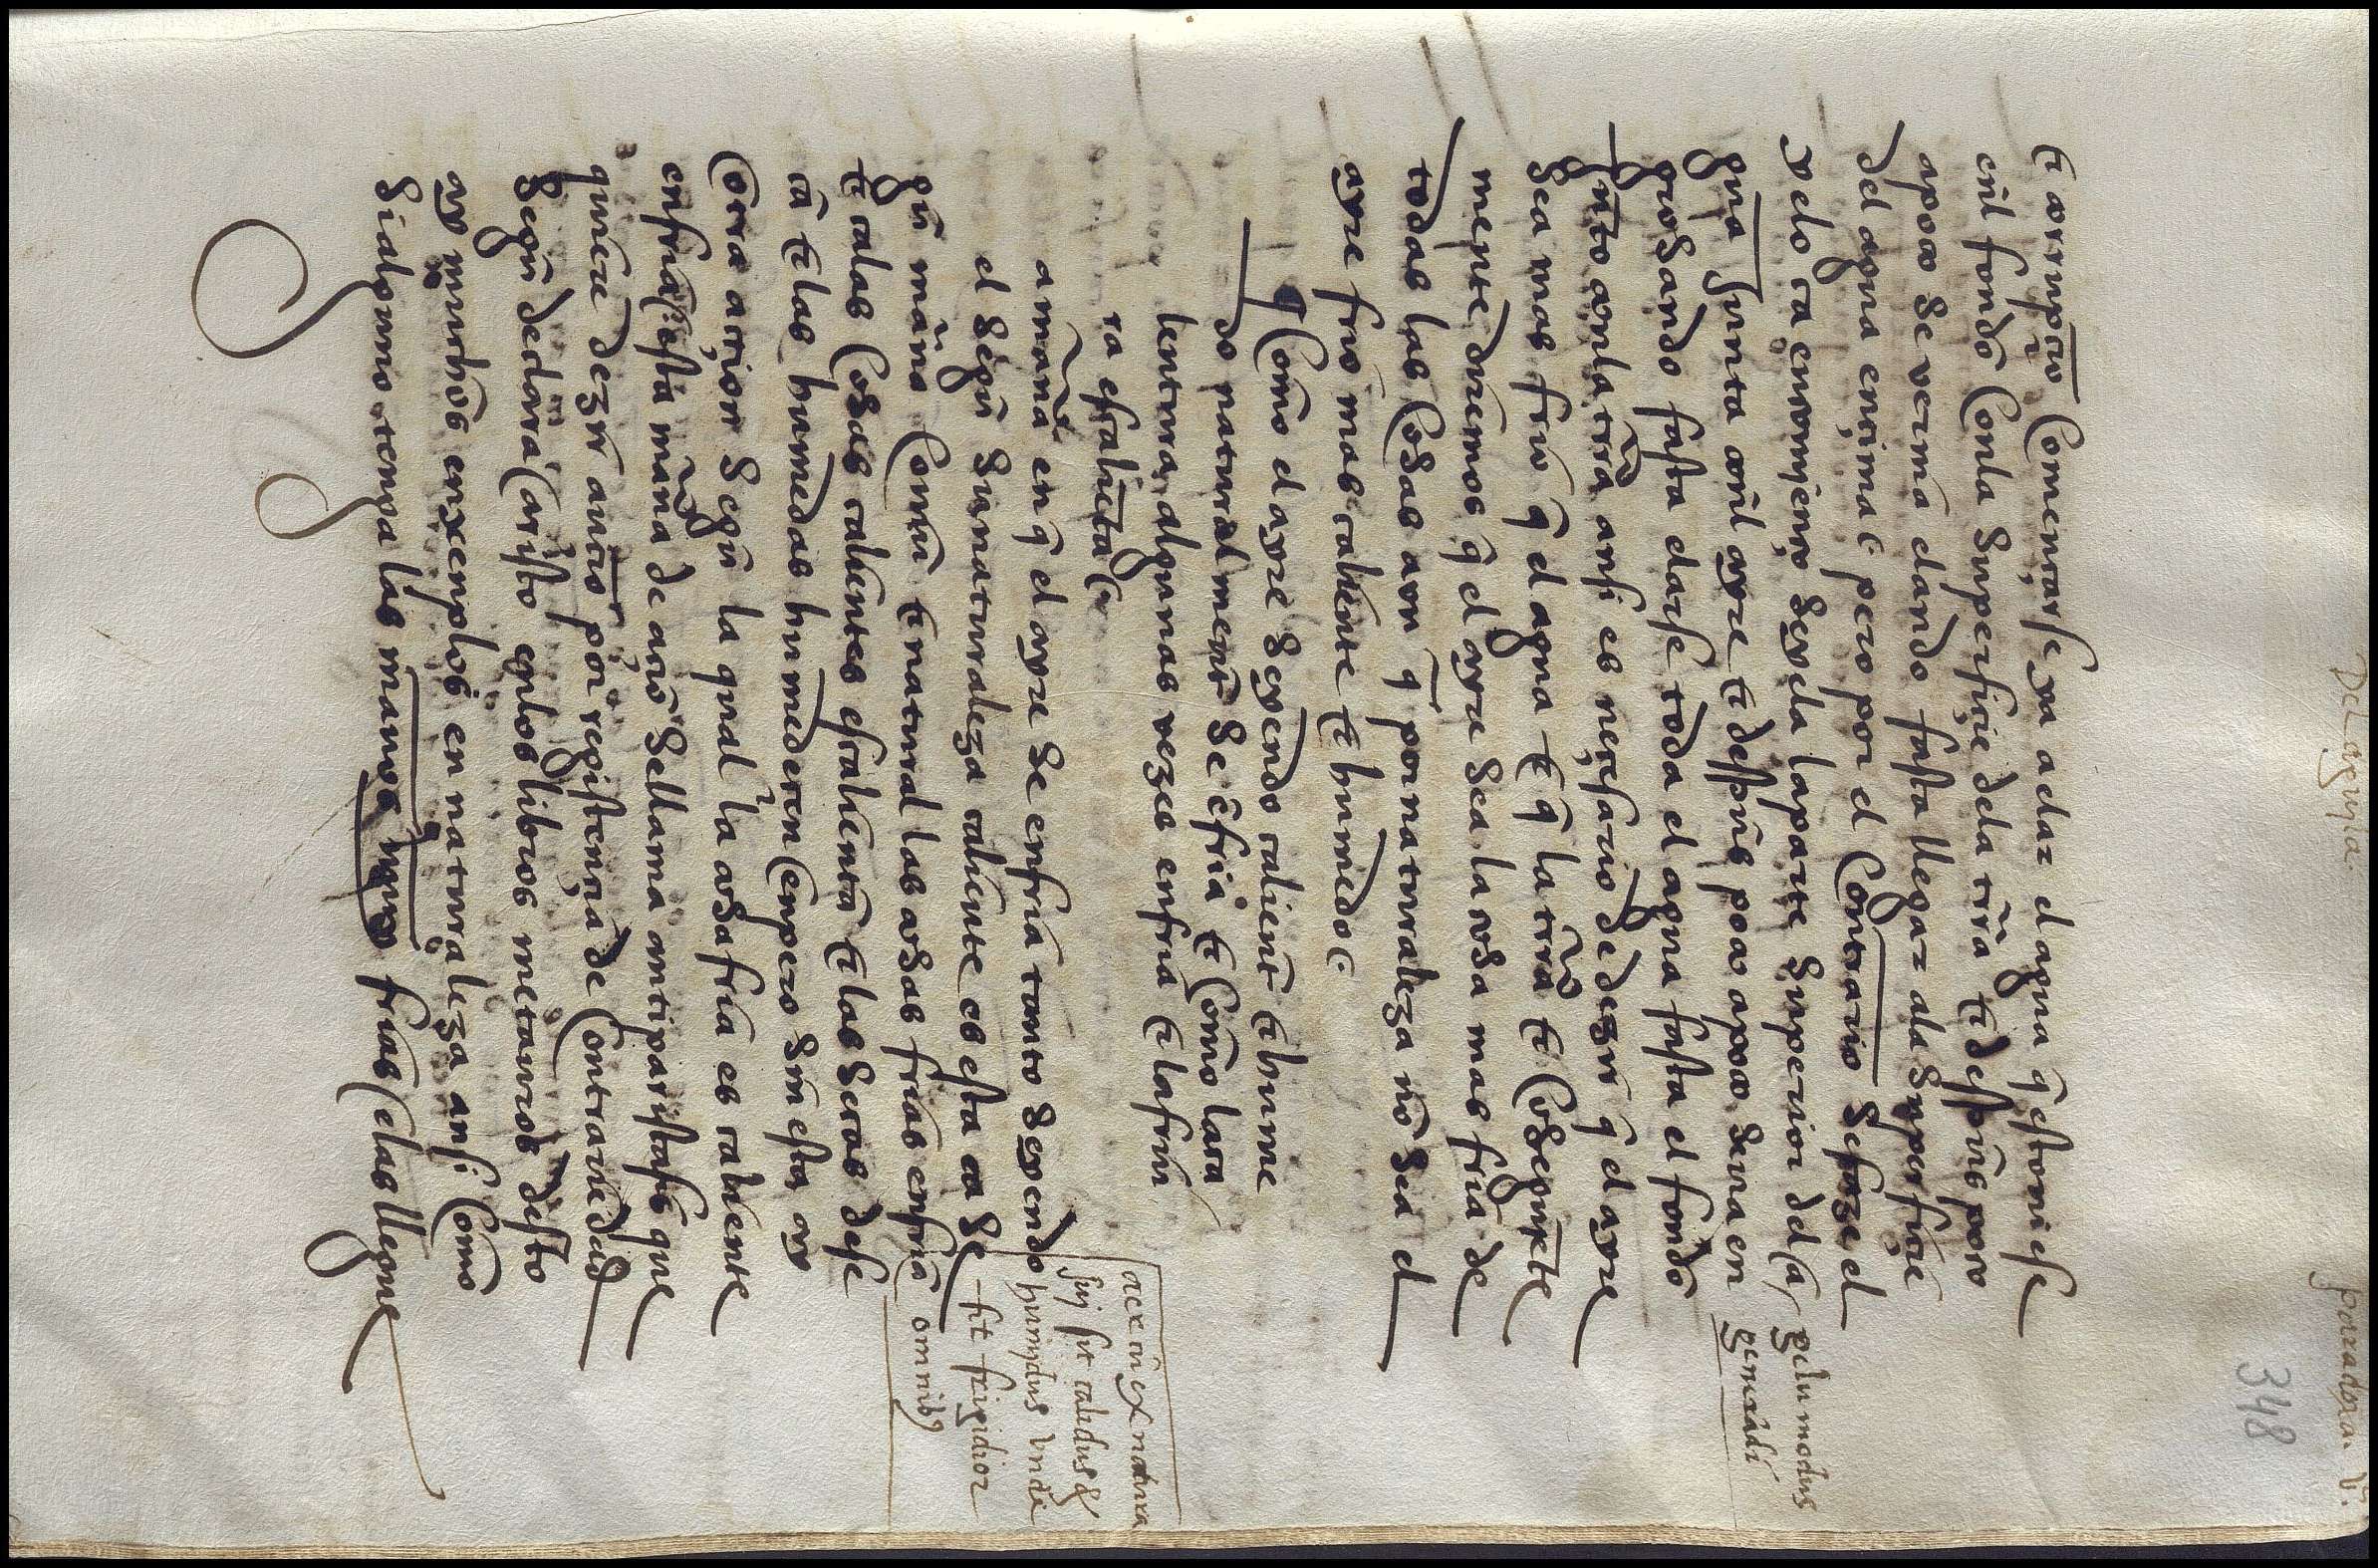 Del agua.
paradoxa. V.
348
& corrupçio Començarse ya a elar el agua q estoviese
enl fondo Conla superfiçie dela trra & despues poco
apoco se vernia elando fasta llegar ala superfiçie
del agua ençima (. pero por el Contrario se faze el
yelo ca comienço seyela la parte superior dela
gua junta conl ayre & despues poco apoco se va en
grosando fasta elarse toda el agua fasta el fondo
junto conla trra ansi es neçesario de dezir q el ayre
sea mas frio q el agua & q la trra & Cosequete
mente diremos q el ayre sea la cosa mas fria de
todas las Cosas avn q por naturaleza no sea el
ayre frio mas caliente & humedo (.
gelu modus
generādi
q Como el ayre seyendo calient & hume
do naturalmente se efria & Como la ca
lentura algunas vezes enfria & la friu
ra escalieta (.
a manā en q el ayre se enfria tanto seyendo
el segu su naturaleza caliente es esta ca se
gu mana Comu & natural las cosas frias enfriā
& calas Cosas calientes escalientā & las secas dese
cā & las humedas humedeçen (empero sin esta ay
Otra açion segu la qual la cosa fria es caliente
enfria (. esta mana de açio se llama antiparistasis que
quiere dezir açion por registençia de Contrariedad
segu declara (aristo enlos libros metauros desto
ay muchos enxenplos en naturaleza ansi Como
si alguno tenga las manos muy frias (elas llegue
aer cu ex natura
sui sit calidus &
humidus unde
fit frigidior
omnibȝ